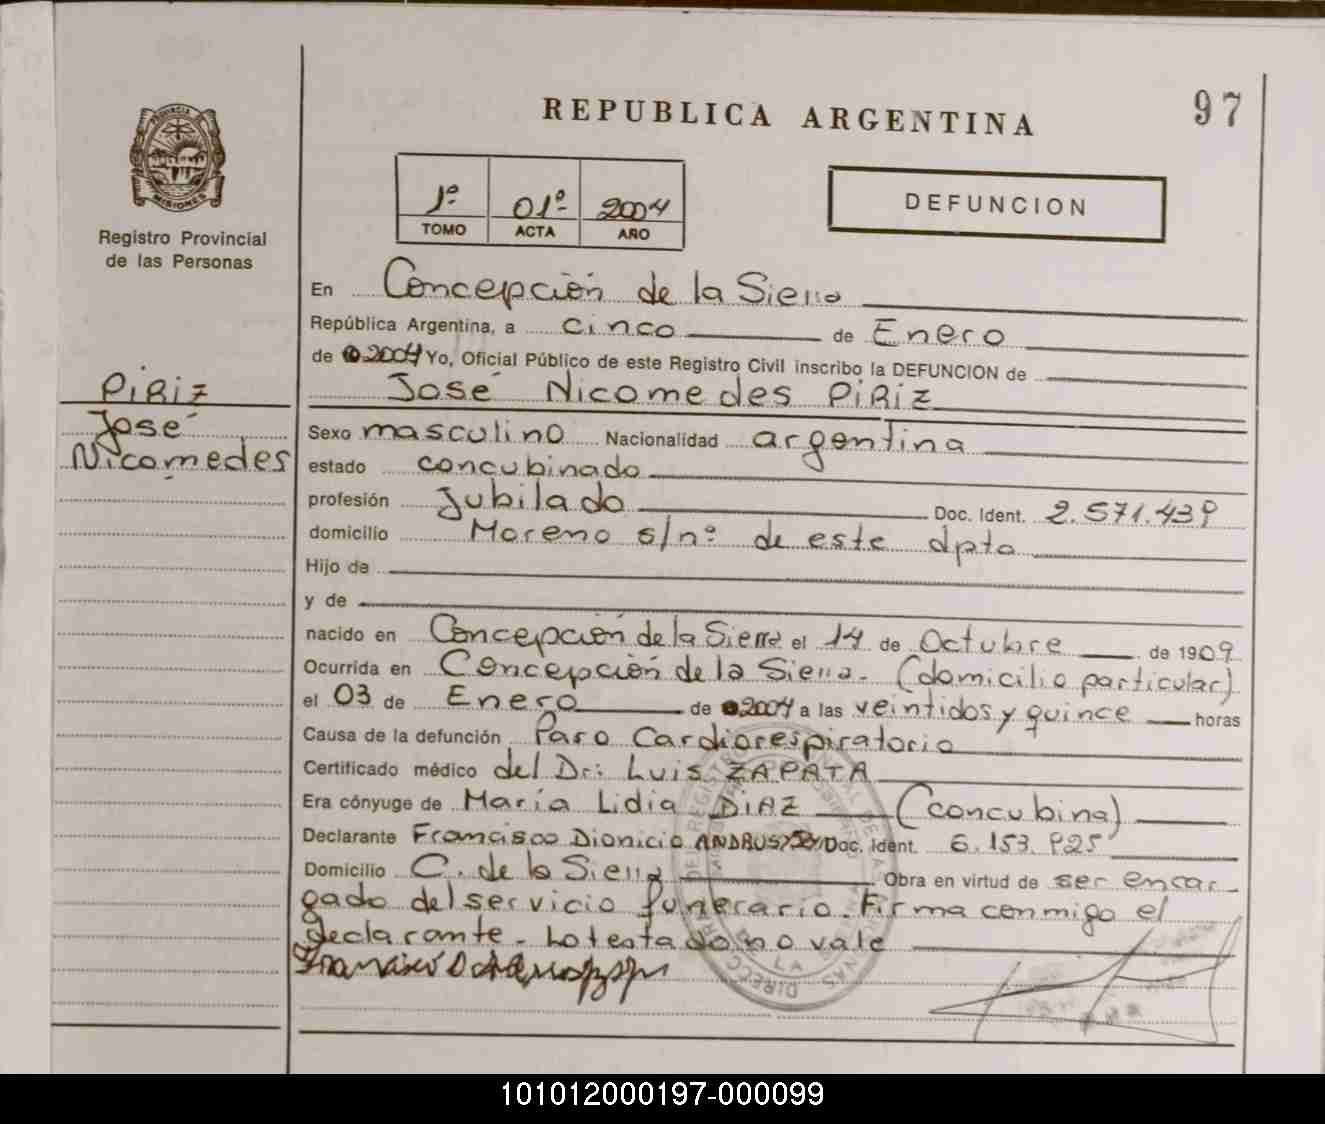 REPUBLICA ARGENTINA
97
PROVINCIA DE
MISIONES
Registro Provincial
de las Personas
1º 01º 2004
TOMO ACTA AÑO
DEFUNCION
En Concepción de la Sierra
República Argentina, a cinco de Enero
de 2004 Yo, Oficial Público de este Registro Civil inscribo la DEFUNCION de
José Nicomedes PIRIZ
PIRIZ
José
Nicomedes
Sexo masculino Nacionalidad argentina
estado concubinado
profesión Jubilado Doc. Ident. 2.571.439
domicilio Moreno s/nº de este dpto
Hijo de
y de
nacido en Concepción de la Sierra el 14 de Octubre de 1909
Ocurrida en Concepción de la Sierra. (domicilio particular)
el 03 de Enero de 2004 a las veintidos y quince horas
Causa de la defunción Paro Cardiorespiratorio
Certificado médico del Dr: Luis ZAPATA
Era cónyuge de María Lidia DIAZ (concubina)
Declarante Francisco Dionicio Doc. Ident. 6.153.925
Domicilio C. de la Sierra Obra en virtud de ser encar-
gado del servicio funerario. Firma conmigo el
declarante. Lo testado no vale
101012000197-000099